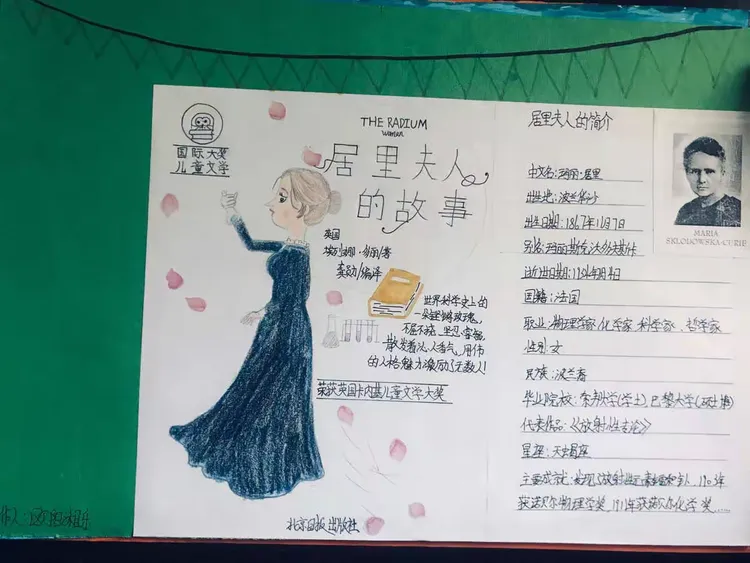 国际大奖
儿童文学
THE RADIUM
women
居里夫人
的故事
英国
埃列娜·朵丽/著
编译
世界科学史上的
一朵玫瑰,
不屈不挠,坚忍
散发着 人香气,用伟
的人格魅力激励了无数人!
荣获英国卡内基儿童文学大奖
北京日报出版社
居里夫人的简介
中文名:玛丽·居里
出生地:波兰华沙
出生日期:1867年11月7日
别名:玛丽
逝世日期:
国籍:法国
职业:物理学家 化学家 科学家、哲学家
性别:女
民族:波兰
毕业院校: 大学(学士)巴黎大学(硕士博)
代表作品:《放射性专论》
星座:天蝎座
主要成就:发现
获诺贝尔物理学奖,1911年获诺贝尔化学奖……
MARIA
SKŁODOWSKA-CURIE
作人: